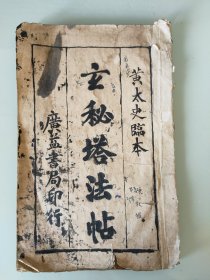 黄太史臨本
玄秘塔法帖
廣益書局印行